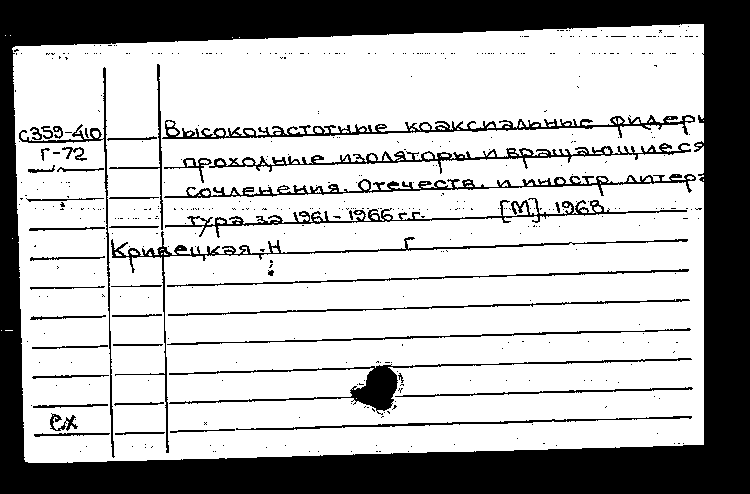 с359-410 Высокочастотные коаксиальные фидеры
Г-72 проходные изоляторы и вращающиеся
сочленения. Отечеств. и иностр литера
тура за 1961-1966 г.г. [М], 1968.
Кривецкая, Н Г
ех